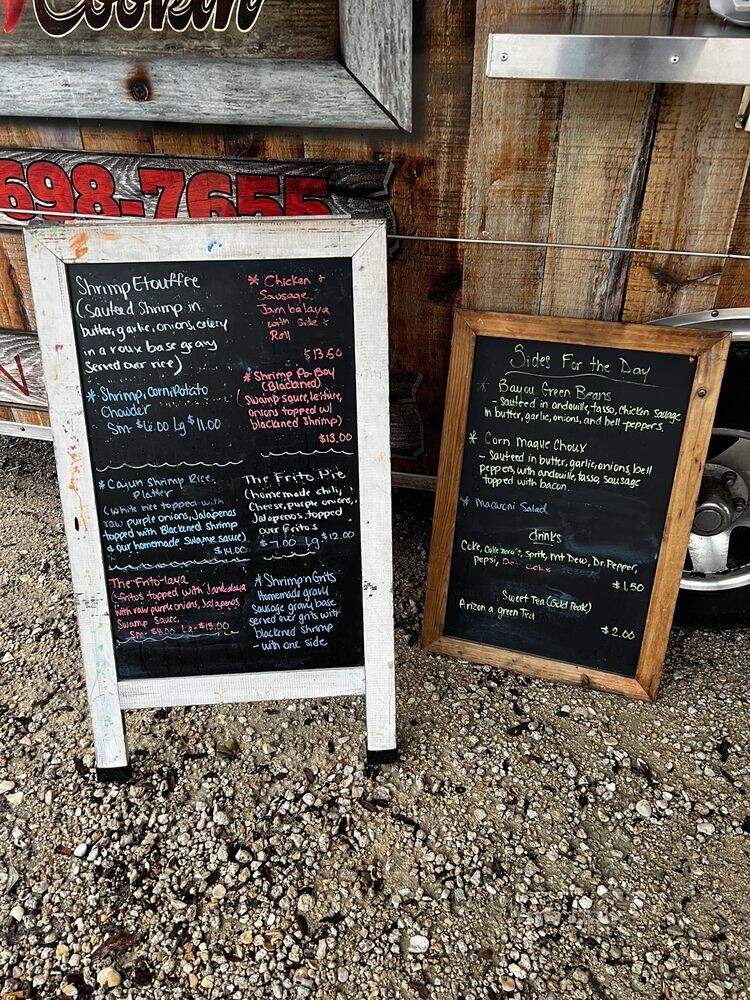 Cookin
698-7655
Shrimp Etouffee
(sauteed shrimp in
butter, garlic, onions, celery
in a roux base gravy
Served over rice)
* Shrimp, Corn, Potato
Chowder
Lg $11.00
* Cajun Shrimp Rice
Platter
(White rice topped with
raw purple onions, Jalapenos
topped with Blackened Shrimp
& our homemade swamp sauce)
$14.00
The Frito-laya
Fritos topped with Jambalaya
with raw purple onions, Jalapenos,
Swamp Sauce.
Sm- $8.00 Lg-$13.00
* Chicken &
Sausage
Jambalaya
with Side &
Roll
$13.50
* Shrimp Po-Boy
(Blackened)
(Swamp sauce, lettuce,
onions topped w/
blackened shrimp)
$13.00
The Frito Pie
(homemade chili,
Cheese, purple onions,
Jalapenos, topped
over fritos
$7.00 Lg $12.00
* Shrimp n Grits
Homemade gravy
Sausage gravy base
served over grits with
blackened shrimp
- with one side
Sides For the Day
* Bayou Green Beans
- Sauteed in andouille, tasso, chicken sausage
in butter, garlic, onions, and bell-peppers.
* Corn Maque Choux
- Sauteed in butter, garlic, onions, bell
peppers, with andouille, tasso, sausage
topped with bacon
* Macaroni Salad
drinks
Coke, Coke zero, Sprite, Mt Dew, Dr. Pepper,
pepsi,
$1.50
Sweet Tea (Gold Peak)
Arizona green Tea
$2.00